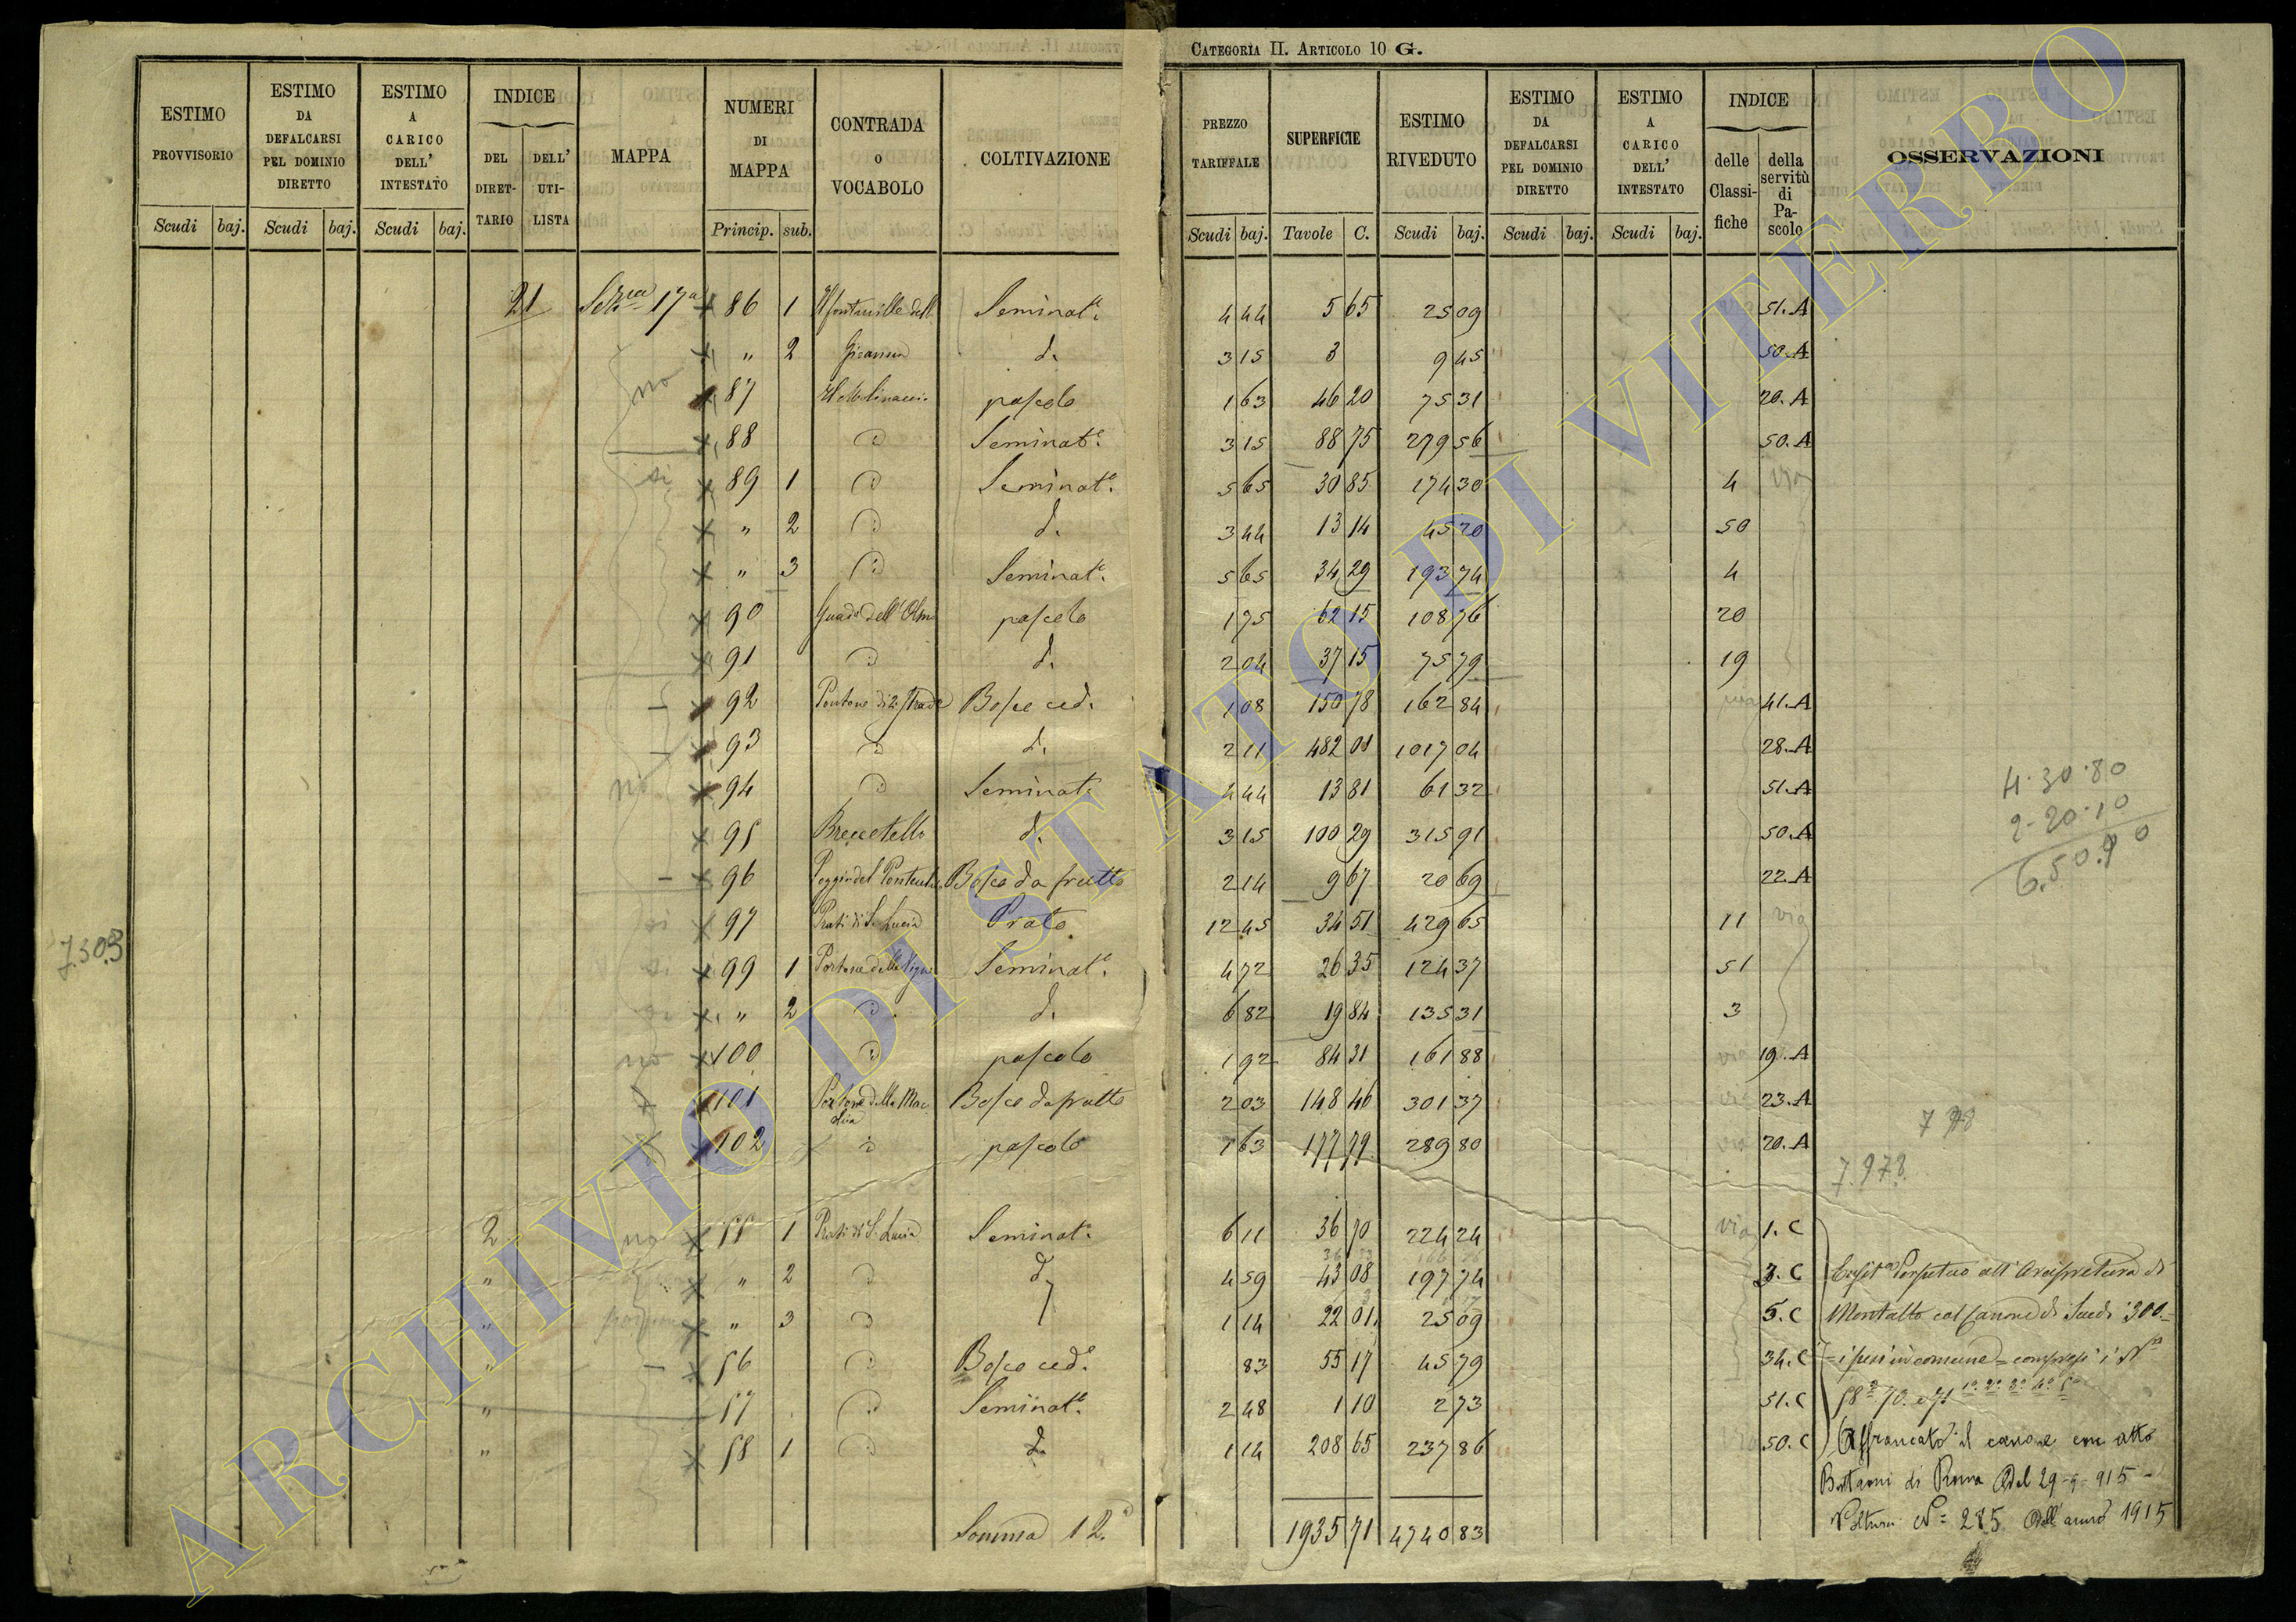 CATEGORIA II. ARTICOLO 10 G.
ESTIMO PROVVISORIO Scudi baj.
ESTIMO DA DEFALCARSI PEL DOMINIO DIRETTO Scudi baj.
ESTIMO A CARICO DELL' INTESTATO Scudi baj.
INDICE DEL DIRETTARIO DELL' UTILISTA
MAPPA
NUMERI DI MAPPA Princip. sub.
CONTRADA O VOCABOLO
COLTIVAZIONE
PREZZO TARIFFALE Scudi baj.
SUPERFICIE Tavole C.
ESTIMO RIVEDUTO Scudi baj.
ESTIMO DA DEFALCARSI PEL DOMINIO DIRETTO Scudi baj.
ESTIMO A CARICO DELL' INTESTATO Scudi baj.
INDICE delle Classifiche della servitù di Pascolo
OSSERVAZIONI
21 17a 86 1 Seminate. 4 44 5 65 25 09 51.A
" 2 d. 3 15 3 9 45 50.A
no 87 pascolo 1 63 46 20 75 31 20.A
88 d Seminate. 3 15 88 75 279 56 50.A
si 89 1 d Seminate. 5 65 30 85 174 30 4 via
" 2 d d. 3 44 13 14 45 20 50
" 3 d Seminate. 5 65 34 29 193 74 4
90 dell'Olmo pascolo 1 75 62 15 108 76 20
91 d d. 2 04 37 15 75 79 19
92 Pontone di 2 strade Bosco ced. 1 08 150 78 162 84 41.A
93 d d. 2 11 482 01 1017 04 28.A
no 94 d Seminate 4 44 13 81 61 32 51.A
95 d. 3 15 100 29 315 91 50.A
96 Bosco da frutto 2 14 9 67 20 69 22.A
si 97 Prati di S. Lucia Prato 12 45 34 51 429 65 11 via
si 99 1 Seminate. 4 72 26 35 124 37 51
" 2 d d. 6 82 19 84 135 31 3
no 100 d pascolo 1 92 84 31 161 88 via 19.A
101 Bosco da frutto 2 03 148 46 301 37 23.A
102 d pascolo 1 63 177 79 289 80 20.A
2 no 55 1 Prati di S. Lucia Seminate. 6 11 36 70 224 24 via 1.C
" " 2 d d 4 59 43 08 197 74 3.C
" " 3 d 1 14 22 01 25 09 5.C
" 56 d Bosco ced. 83 55 17 45 79 34.C
" 57 d Seminate. 2 48 1 10 2 73 51.C
" 58 1 d d. 1 14 208 65 237 86 50.C
Somma 12. 1935 71 4740 83
4.30.80
2.20.10
6.50.90
7.978
Perpetuo all'Arcipretura di
Montalto col canone di Scudi 300
in comune = compresi i
58 70. e 71 1° 2° 3° 4° 5°
Affrancato il canone con atto
di Roma del 29-9-915
Voltura N= 285 dell'anno 1915
ARCHIVIO DI STATO DI VITERBO